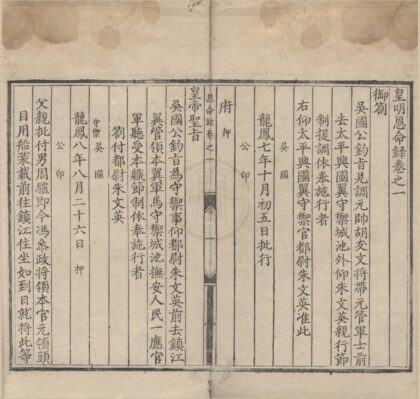 皇明恩命錄卷之一
御劄
吳國公鈞旨見調元帥胡友文將帶元管軍士前
去太平興國翼守禦城池外仰朱文英親行節
制提調依奉施行者
右仰太平興國翼守禦官都尉朱文英准此
吳國
龍鳳七年十月初五日批行
府 押
恩命錄 卷之一
皇帝聖旨
吳國公鈞旨為守禦事仰都尉朱文英前去鎮江
翼管領本翼軍馬守禦城池撫安人民一應官
軍聽受本職節制依奉施行者
劄付都尉朱文英
守禦 吳國
龍鳳八年八月二十六日 押
公印
父親批付男周驢即今馮參政將領本官元領頭
目用船裝載前往鎮江住坐如到日就將此等